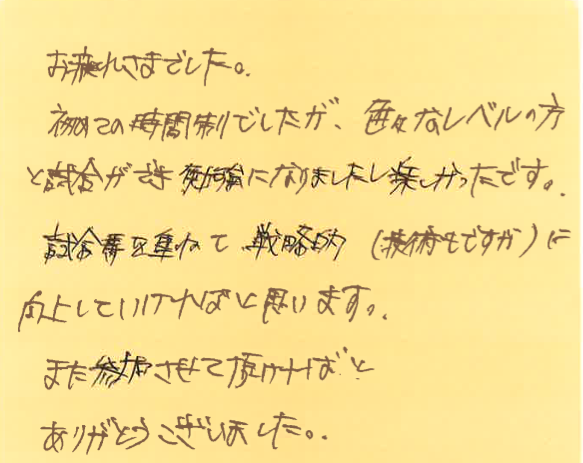 お疲れさまでした。
初めての時間制でしたが、色々なレベルの方
と試合ができ勉強になりましたし楽しかったです。
試合数を重ねて、戦略的(技術もですが)に
向上していければと思います。
また参加させて頂ければと
ありがとうございました。